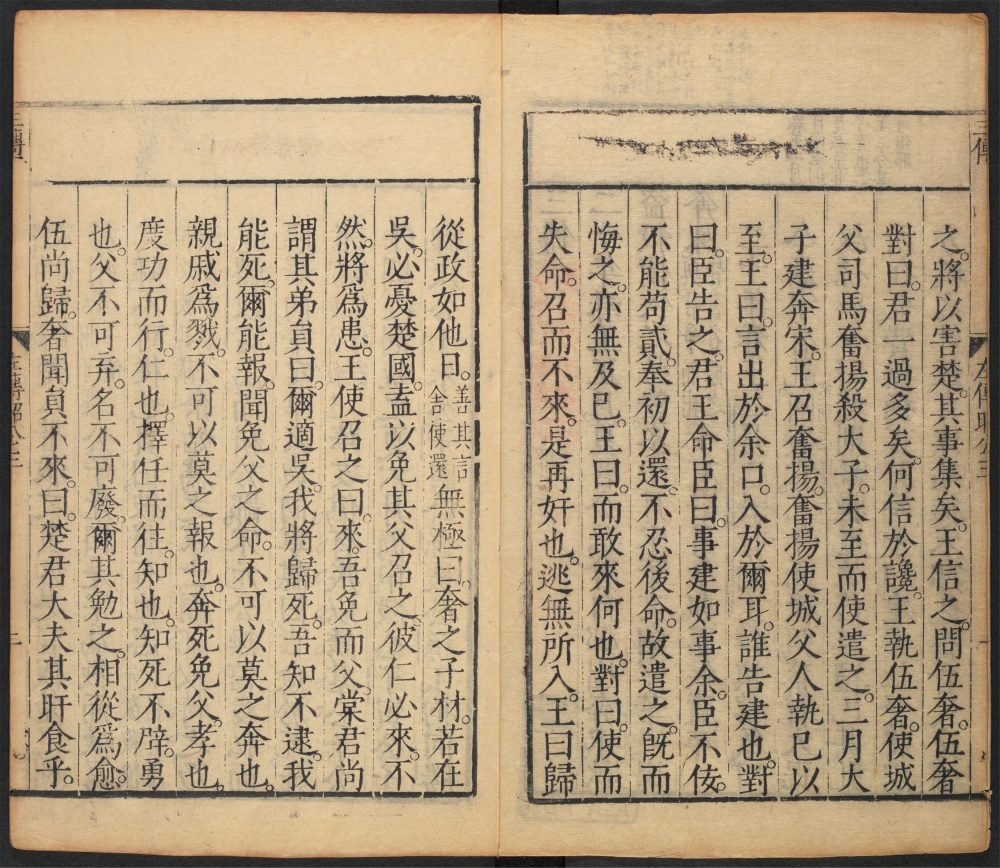 之。將以害楚。其事集矣。王信之。問伍奢。伍奢
對曰。君一過多矣。何信於讒。王執伍奢。使城
父司馬奮揚殺大子。未至而使遣之。三月大
子建奔宋。王召奮揚。奮揚使城父人執己以
至。王曰。言出於余口。入於爾耳。誰告建也。對
曰。臣告之。君王命臣曰。事建如事余。臣不佞。
不能苟貳。奉初以還。不忍後命。故遣之。既而
悔之。亦無及已。王曰。而敢來何也。對曰。使而
失命。召而不來。是再奸也。逃無所入。王曰歸
從政如他日。善其言舍使還無極曰。奢之子材。若在
吳。必憂楚國。盍以免其父召之。彼仁必來。不
然。將爲患。王使召之曰。來。吾免而父。棠君尚
謂其弟員曰。爾適吳。我將歸死。吾知不逮。我
能死。爾能報。聞免父之命。不可以莫之奔也。
親戚爲戮。不可以莫之報也。奔死免父。孝也。
度功而行。仁也。擇任而往。知也。知死不辟。勇
也。父不可弃。名不可廢。爾其勉之。相從爲愈。
伍尚歸。奢聞員不來。曰。楚君大夫其旰食乎。